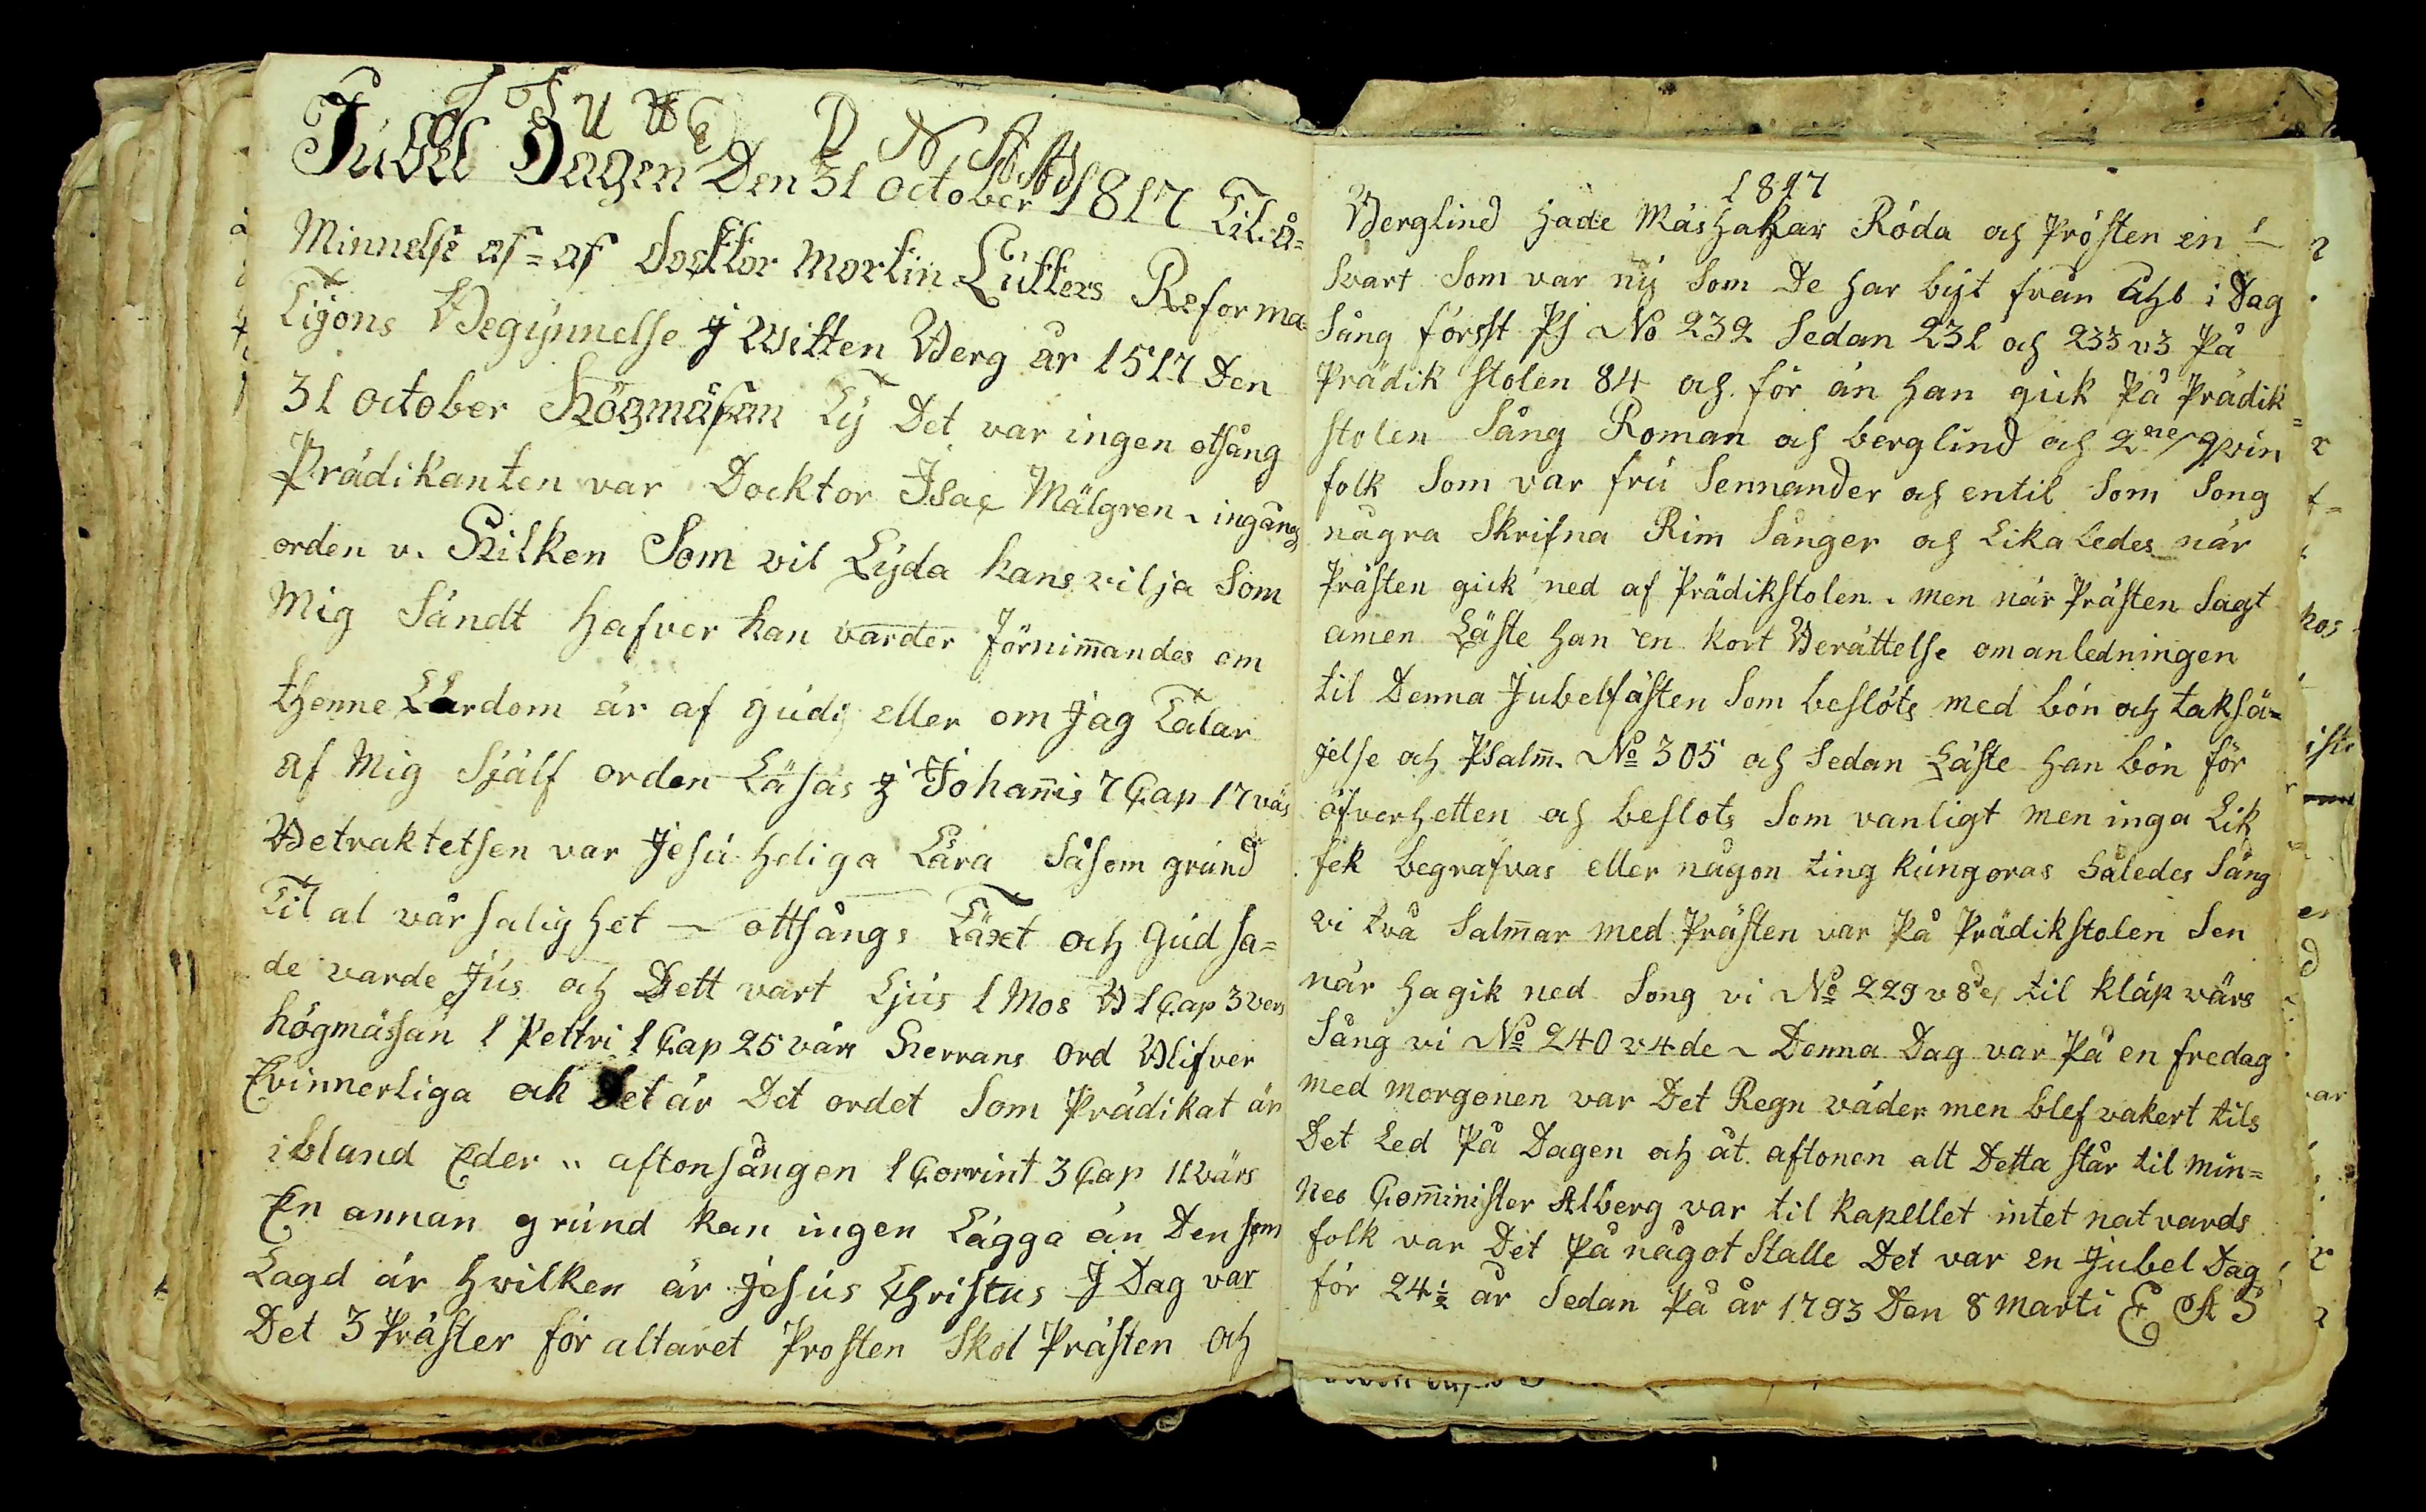 Jubel Dagen Den 31 october 1817 Til å=
Minnelse af = af docktor mortin Lutters Reforma=
Tijons Begynnelse J Witten Berg år 1517 Den
31 october Högmäsan Ty Det var ingen otsång
Prädikanten var Docktor Isac Mälgren ingångs
orden v. Hilken Som vil Lyda hans vilja Som
Mig Sändt Hafver han varder förnim̄andes om
thenne Lärdom är af gudi eller om Jag Talar
af Mig Själf orden Läsas J Johan̄is 7 Cap 17 värs
Betraktetsen var Jesu heliga Lära Såsom grund
Til al vår salighet — ottsångs Täxt och gud sa=
de varde Jus och Dett vart Ljus 1 Mos B 1 Cap 3 vers
högmässan 1 Pettri 1 Cap 25 värs Herrans ord Blifver
Evinnerliga och Det är Det ordet Som Prädikat är
ibland Eder " aftonsången 1 Corrint 3 Cap 11 värs
En annan grund kan ingen Lägga än Den som
Lagd är Hwilken är Jesus Christus J Dag var
Det 3 Präster för altaret Prosten Skol Prästen och
1817
Berglind Hade Mäshakar Röda och Prosten en
Svart Som var ny Som De har byt från i Dag
Sång försst Ps No 232 Sedan 231 och 233 v 3 På
Prädik stolen 84 och för än Han gick På Prädik=
stolen Sång Roman och berglind och 2ne qvin
folk Som var fru Sennander och entil Som Song
några Skrifna Rim Sånger och Lika Ledes när
Prästen gick ned af Prädikstolen. men när Prästen Sagt
amen Läste Han en kort Berättelse om anledningen
til Denna Jubelfästen Som beslöts med bön och taksä=
jelse och Psalm̄. No 305 och Sedan Läste Han bön för
öfverhetten och beslots Som vanligt men inga Lik
fek begrafvas eller någon ting kungoras Således Sång
vi två Salm̄ar med Prästen var På Prädikstolen Sen
når Hagik ned Song vi No 229 v 8de til kläp värs
Sång vi No 240 v 4de ~ Denna Dag var På en fredag
med morgonen var Det Regn väder men blef vakert tils
Det Led På Dagen och åt aftonen alt Detta står til min=
nes Com̄inister Alberg var til kapellet intet natvards
folk var Det På något Stalle Det var en Jubel Dag
för 24½ år Sedan På år 1793 Den 8 Marti E A S